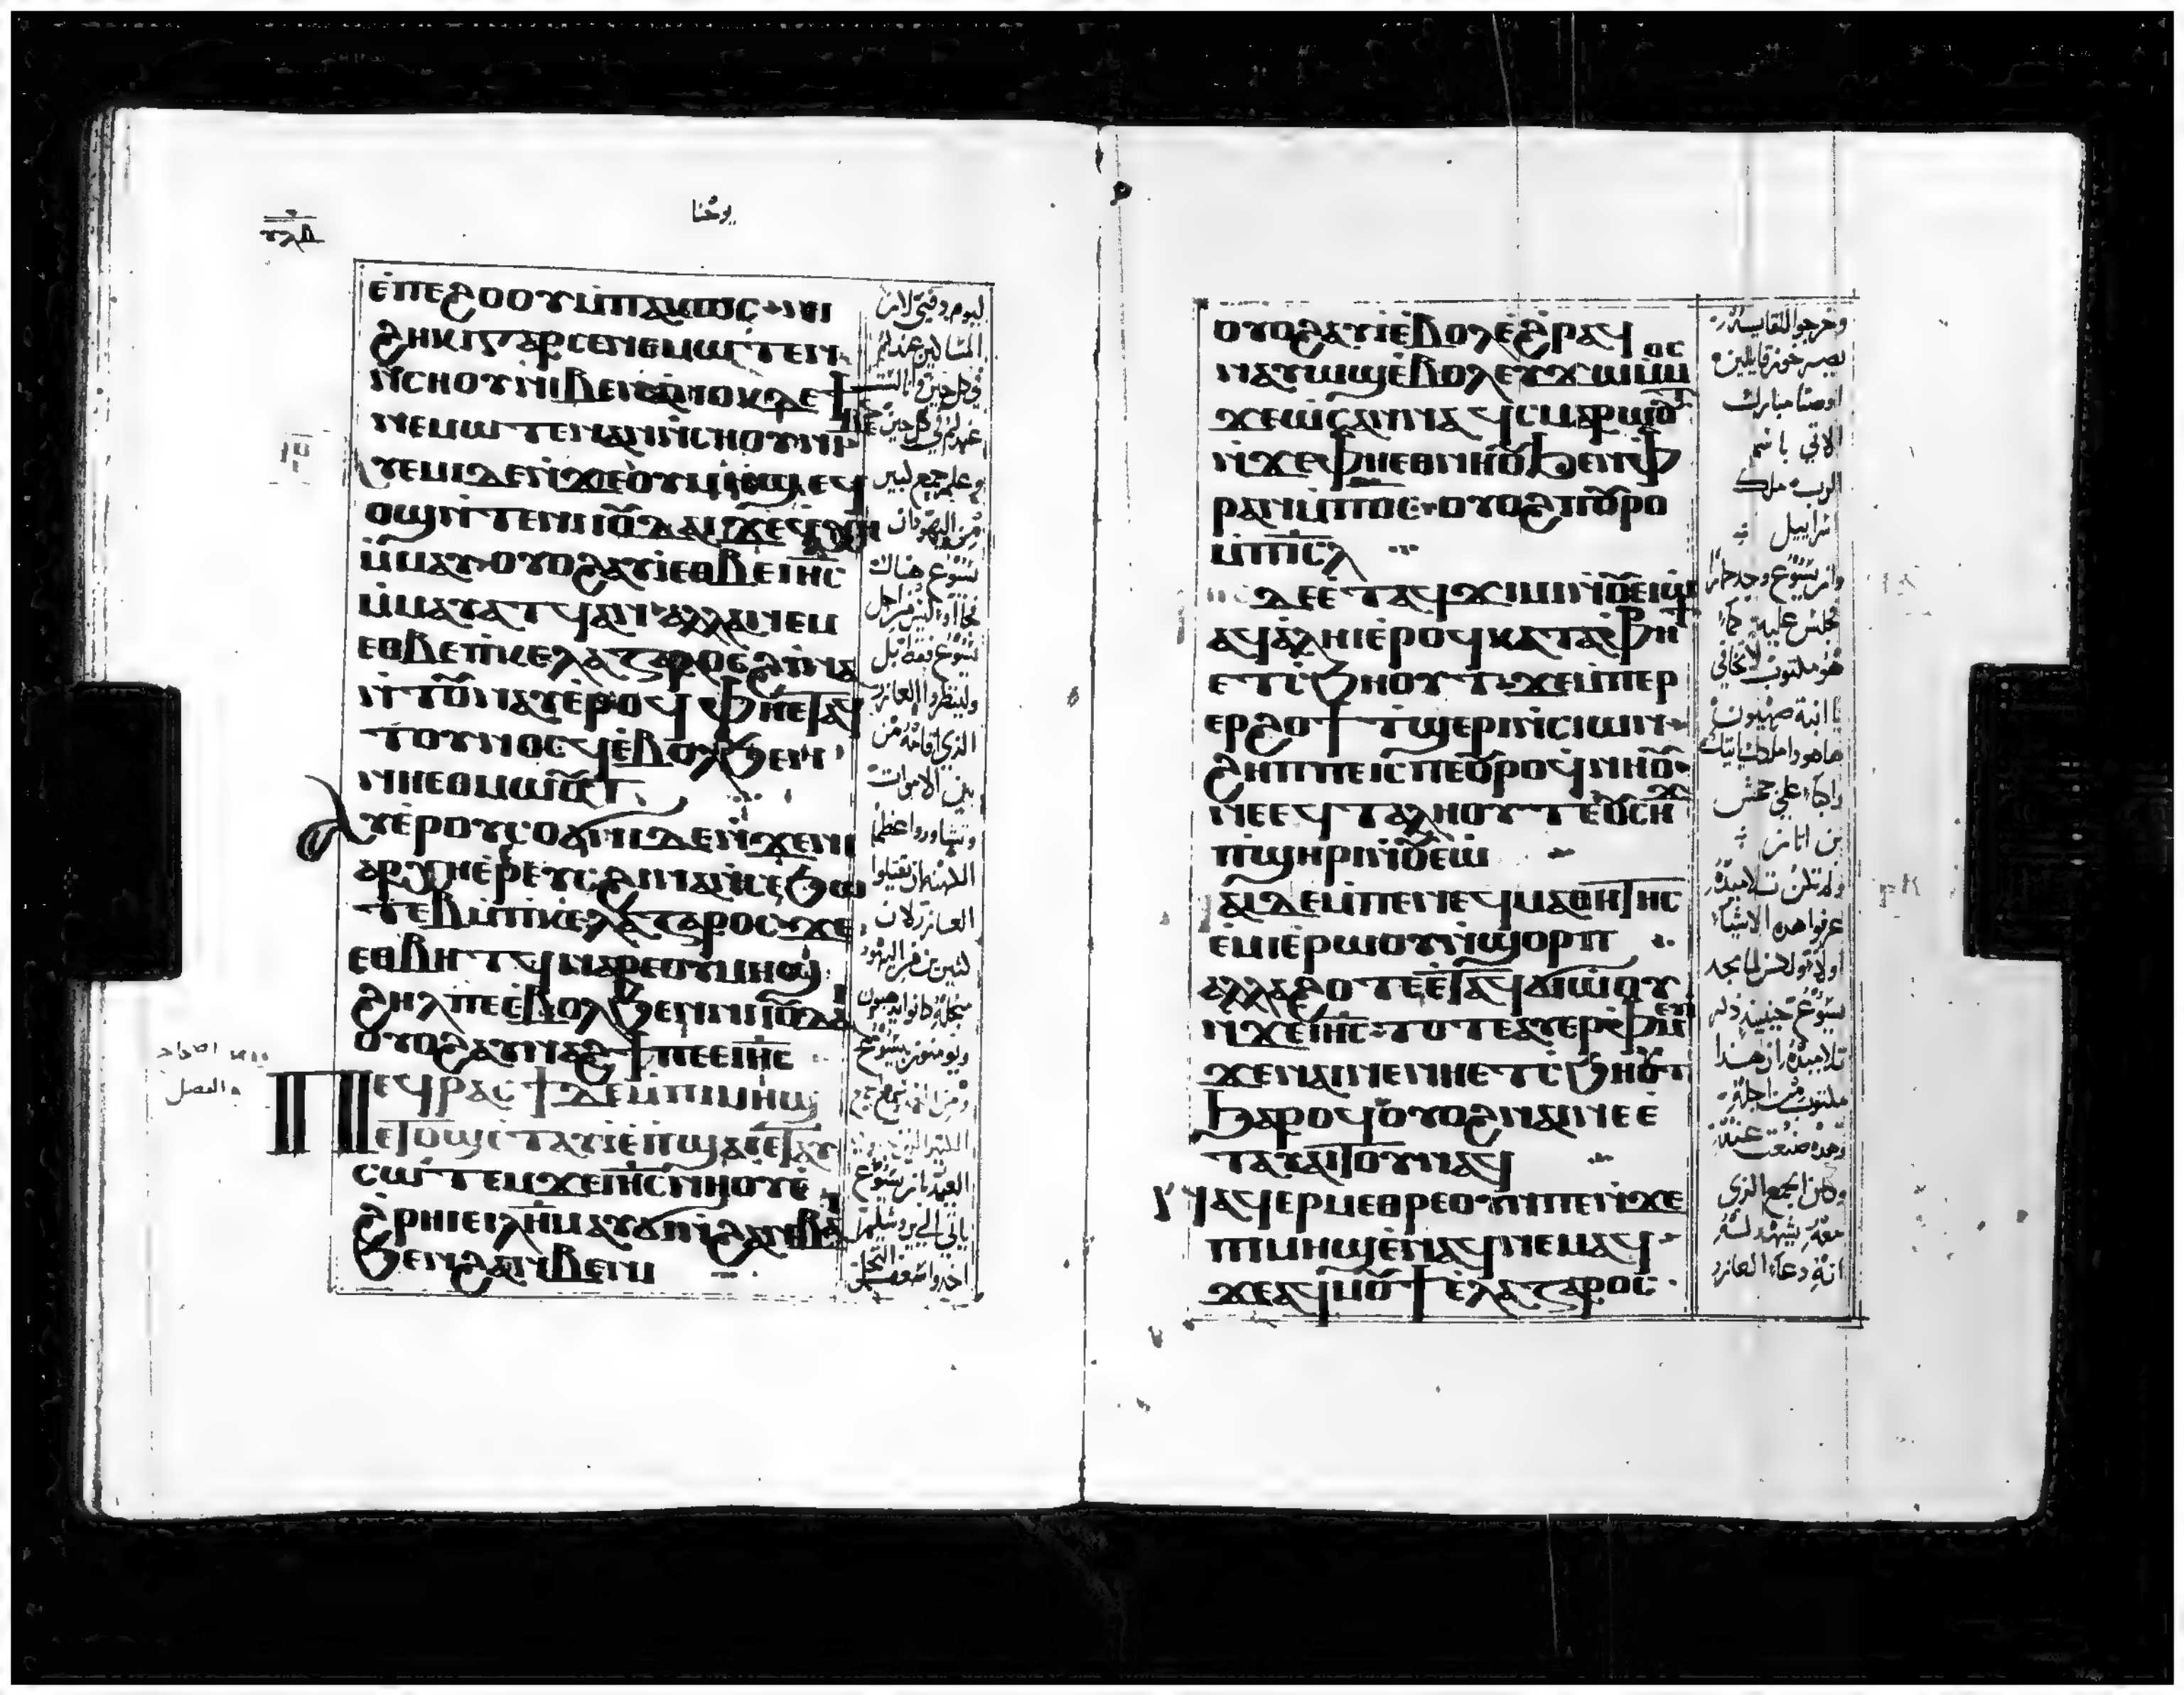 يوحنا
ⲩⲗⲇ
ⲉ̇ⲡⲉϩⲟⲟⲩ ⲙ̇ⲡⲁⲕⲱⲥ ⲛⲓ
ϩⲏⲕⲓ ⲅⲁⲣ ⲥⲉⲛⲉⲙⲱⲧⲉⲛ
ⲛ̇ⲥⲏⲟⲩ ⲛⲓⲃⲉⲛ ⲁⲛⲟⲕ ⲇⲉ ϯ
ⲛⲉⲙⲱⲧⲉⲛ ⲁⲛ ⲛ̇ⲥⲏⲟⲩ ⲛⲓⲃⲉⲛ
ⲁⲩⲉ̇ⲙⲓ ⲇⲉ ⲛ̇ϫⲉ ⲟⲩⲙⲏϣ ⲉϥ
ⲟϣ ⲛ̇ⲧⲉ ⲛⲓⲓⲟⲩⲇⲁⲓ ϫⲉ ϥⲭⲏ
ⲙ̇ⲙⲁⲩ ⲟⲩⲟϩ ⲁⲩⲓ̇ ⲉⲑⲃⲉ ⲓⲏⲥ
ⲙ̇ⲙⲁⲩⲁⲧϥ ⲁⲛ ⲁⲗⲗⲁ ⲛⲉⲙ
ⲉⲑⲃⲉ ⲡⲕⲉⲗⲁⲍⲁⲣⲟⲥ ϩⲓⲛⲁ
ⲛ̇ⲧⲟⲩⲛⲁⲩ ⲉ̇ⲣⲟϥ ⲫⲏⲉⲧⲁϥ
ⲧⲟⲩⲛⲟⲥϥ ⲉ̇ⲃⲟⲗ ϧⲉⲛ
ⲛⲏⲉⲑⲙⲱⲟⲩⲧ
ⲁⲩⲉ̇ⲣⲟⲩⲥⲟϭⲛⲓ ⲇⲉ ⲛ̇ϫⲉ ⲛⲓ
ⲁⲣⲭⲏⲉ̇ⲣⲉⲩⲥ ϩⲓⲛⲁ ⲛ̇ⲥⲉϧⲱ
ⲧⲉⲃ ⲙ̇ⲡⲕⲉⲗⲁⲍⲁⲣⲟⲥ ϫⲉ
ⲉⲑⲃⲏⲧϥ ⲛⲁⲣⲉ ⲟⲩⲙⲏϣ
ϩⲏⲗ ⲡⲉ ⲉ̇ⲃⲟⲗ ϧⲉⲛ ⲛⲓⲓⲟⲩⲇⲁⲓ
ⲟⲩⲟϩ ⲁⲩⲛⲁϩϯ ⲡⲉ ⲉⲓⲏⲥ
ⲡⲉϥⲣⲁⲥϯ ⲇⲉ ⲙ̇ⲡⲓⲙⲏϣ
ⲉⲧⲟϣ ⲉ̇ⲧⲁⲩⲓ̇ ⲉ̇ⲡϣⲁⲓ ⲉⲧⲁⲩ
ⲥⲱⲧⲉⲙ ϫⲉ ⲓⲏⲥ ⲛⲏⲟⲩ ⲉ̇
ϩⲣⲏⲓ ⲉⲓⲗⲏⲙ ⲁⲩϭⲓ ⲛ̇ϩⲁⲛⲃⲁⲓ
ϧⲉⲛ ϩⲁⲛⲃⲉⲛⲓ
ليوم دفني لان
المساكين عندكم
في كل حين وانا لست
عندكم في كل حين
وعلم جمع كبير
من اليهود ان
يسوع هناك
فجاءوا ليس من اجل
يسوع فقط بل
ولينظروا العازر
الذي اقامه من
بين الاموات
وتشاوروا عظما
الكهنة ان يقتلوا
العازر لان
كثيرين من اليهود
من اجله كانوا يذهبون
ويومنون بيسوع
العيد ان يسوع
ياتي الي يروشليم
اخذوا سعف النخل
ⲟⲩⲟϩ ⲁⲩⲓ̇ ⲉ̇ⲃⲟⲗ ⲉ̇ϩⲣⲁϥ
ⲛⲁⲩⲱϣ ⲉ̇ⲃⲟⲗ ⲉⲩϫⲱ ⲙ̇ⲙⲟⲥ
ϫⲉ ⲱⲥⲁⲛⲛⲁ ϥⲥⲙⲁⲣⲱⲟⲩⲧ
ⲛ̇ϫⲉ ⲫⲏⲉⲑⲛⲏⲟⲩ ϧⲉⲛ ⲫ
ⲣⲁⲛ ⲙ̇ⲡⲟⲥ ⲟⲩⲟϩ ⲡⲟⲩⲣⲟ
ⲙ̇ⲡⲓⲥⲗ
ⲇⲉ ⲉ̇ⲧⲁϥϫⲓⲙⲓ ⲛ̇ⲓⲟⲩⲉⲱ
ⲁϥⲁ̇ⲗⲏⲓ ⲉ̇ⲣⲟϥ ⲕⲁⲧⲁ ⲫⲣⲏϯ
ⲉⲧⲥϧⲏⲟⲩⲧ ϫⲉ ⲙ̇ⲡⲉⲣ
ⲉⲣϩⲟϯ ⲧϣⲉⲣⲓ ⲛ̇ⲥⲓⲱⲛ
ϩⲏⲡⲡⲉ ⲓⲥ ⲡⲉⲟⲩⲣⲟ ϥⲛⲏⲟⲩ
ⲛⲉ ⲉϥⲧⲁⲗⲏⲟⲩⲧ ⲉϫⲉⲛ ⲟⲩⲥⲏϫ
ⲡϣⲏⲣⲓ ⲛ̇ⲓⲟⲩⲉⲱ
ⲛⲁⲓ ⲇⲉ ⲙ̇ⲡⲉ ⲛⲉϥⲙⲁⲑⲏⲧⲏⲥ
ⲉ̇ⲙⲓ ⲉ̇ⲣⲱⲟⲩ ⲛ̇ϣⲟⲣⲡ
ⲁⲗⲗⲁ ϩⲟⲧⲉ ⲉ̇ⲧⲁϥϭⲓⲱ̇ⲟⲩ
ⲛ̇ϫⲉ ⲓⲏⲥ ⲧⲟⲧⲉ ⲁⲩⲉⲣⲫⲙⲉⲩⲓ
ϫⲉ ⲛⲁⲓ ⲛⲉ ⲛⲏⲉⲧⲥϧⲏⲟⲩⲧ
ϧⲁⲣⲟϥ ⲟⲩⲟϩ ⲛⲁⲓ ⲛⲉ ⲉ̇
ⲧⲁⲩⲁⲓⲧⲟⲩ ⲛⲁϥ
ⲛⲁϥⲉⲣⲙⲉⲑⲣⲉ ⲟⲩⲛ ⲡⲉ ⲛ̇ϫⲉ
ⲡⲓⲙⲏϣ ⲉ̇ⲛⲁϥⲛⲉⲙⲁϥ
ϫⲉ ⲁϥⲙⲟⲩϯ ⲉ̇ⲗⲁⲍⲁⲣⲟⲥ
وخرجوا للقايه
يصرخون قايلين
اوصنا مبارك
الاتي باسم
الرب ملك
اسراييل
وان يسوع وجد حمارا
فجلس عليه كما
هو مكتوب لا تخافي
يا ابنة صهيون
ها هوذا ملكك ياتيك
راكبا علي جحش
بن اتان
ولم تكن تلاميذه
عرفوا هذه الاشياء
اولا ولكن لما مجد
يسوع حينيذ ذكر
تلاميذه ان هذا
مكتوب من اجله
وهذه صنعت
وكان الجمع الذي
معه يشهد له
انه دعا العازر